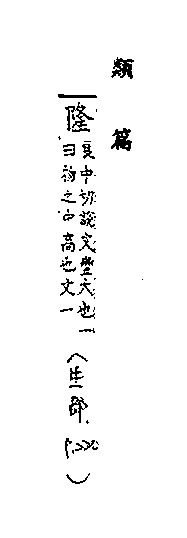 類篇
隆
良中切說文豐大也一
曰物之中高也文一
(生部 P.220)